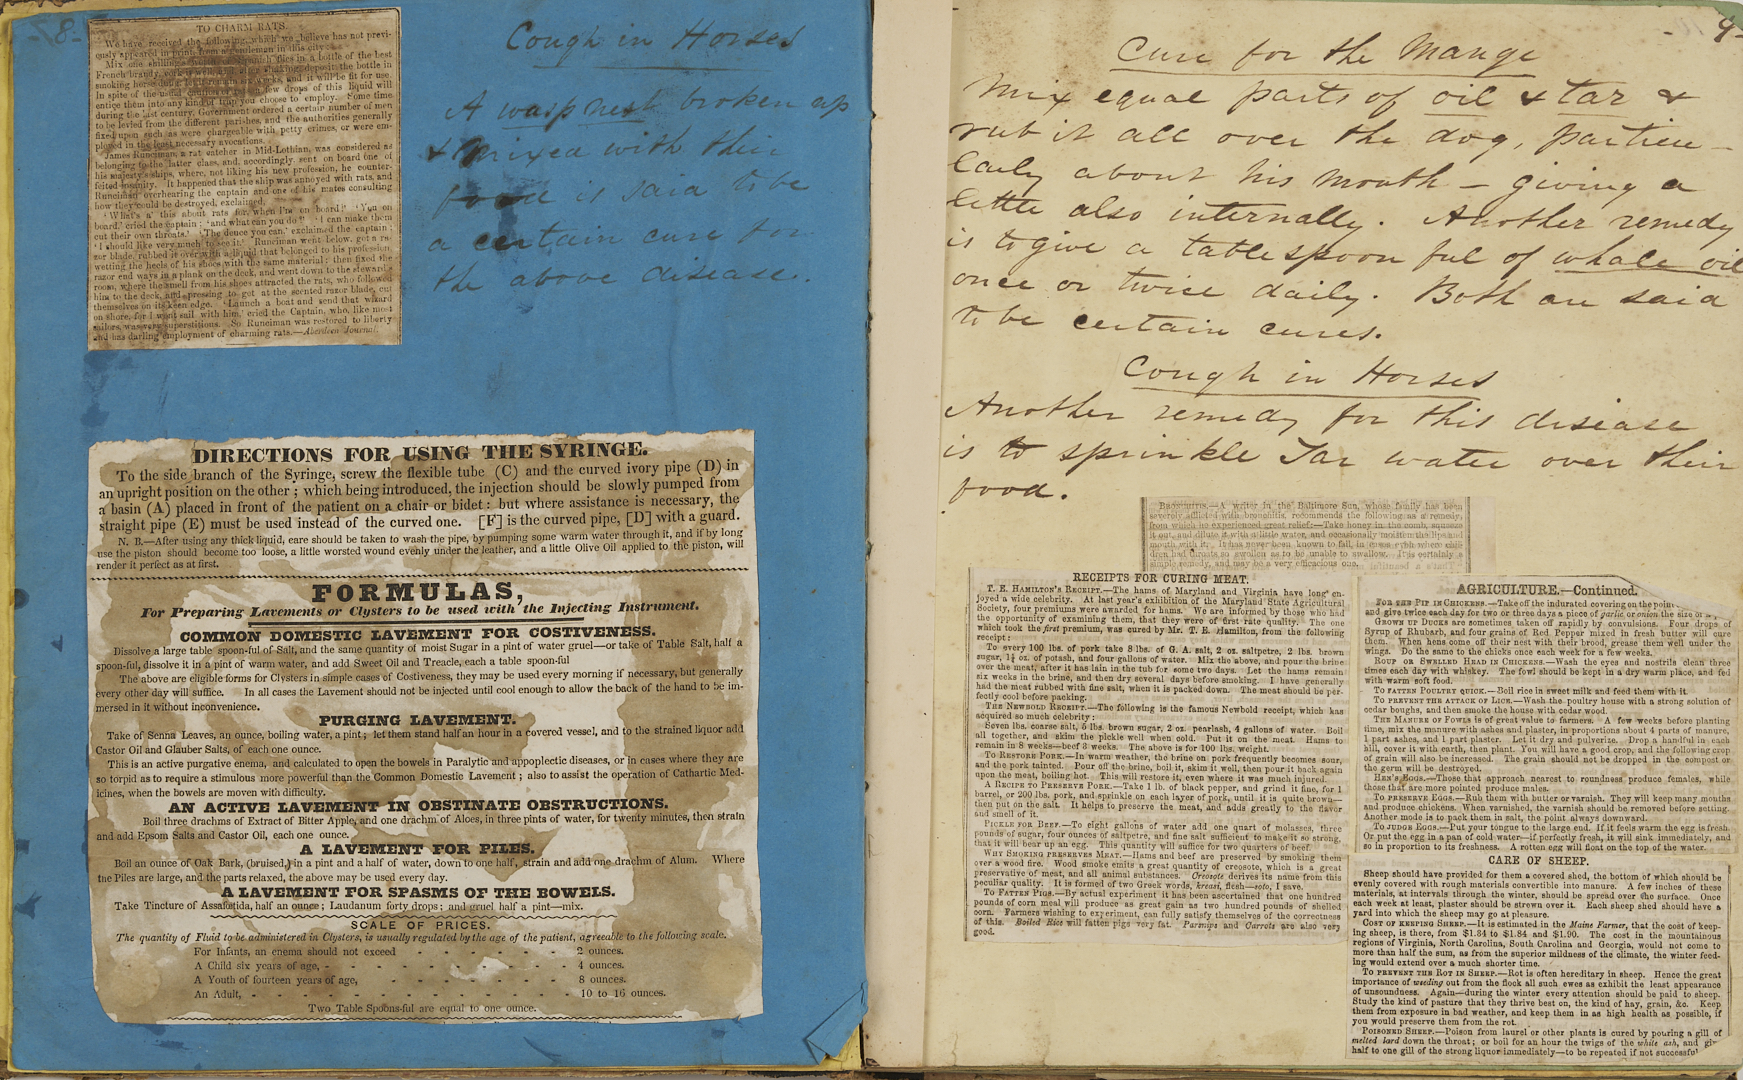 -8-
TO CHARM RATS.
We have received the following, which we believe has not previ-
ously appeared in print, from a gentleman in this city:—
Mix one shilling's worth of Spanish flies in a bottle of the best
French brandy, cork it well, and after shaking, deposit the bottle in
smoking horse weeks, and it will be fit for use.
In spite of the few drops of this liquid will
entice them into any kind of trap you choose to employ. Some time
during the last century, Government ordered a certain number of men
to be levied from the different parishes, and the authorities generally
fixed upon such as were chargeable with petty crimes, or were em-
ployed in the least necessary avocations.
James Runciman, a rat catcher in Mid-Lothian, was considered as
belonging to the latter class, and, accordingly, sent on board one of
his majesty's ships, where, not liking his new profession, he counter-
feited insanity. It happened that the ship was annoyed with rats, and
Runciman overhearing the captain and one of his mates consulting
how they could be destroyed, exclaimed,
'What's a' this about rats for, when I'm on board?' 'You on
board,' cried the captain; 'and what can you do?' 'I can make them
cut their own throats.' 'The deuce you can,' exclaimed the captain;
'I should like very much to see it.' Runciman went below, got a ra-
zor blade, rubbed it over with a liquid that belonged to his profession,
wetting the heels of his shoes with the same material; then fixed the
razor end ways in a plank on the deck, and went down to the steward's
room, where the smell from his shoes attracted the rats, who followed
him to the deck, and pressing to get at the scented razor blade, cut
themselves on its keen edge. 'Launch a boat and send that wizard
on shore, for I wont sail with him,' cried the Captain, who, like most
sailors, was very superstitious. So Runciman was restored to liberty
and his darling employment of charming rats.—Aberdeen Journal.
Cough in Horses
A wasp nest broken up
& mixed with their
food is said to be
a certain cure for
the above disease.
DIRECTIONS FOR USING THE SYRINGE.
To the side branch of the Syringe, screw the flexible tube (C) and the curved ivory pipe (D) in
an upright position on the other; which being introduced, the injection should be slowly pumped from
a basin (A) placed in front of the patient on a chair or bidet: but where assistance is necessary, the
straight pipe (E) must be used instead of the curved one. [F] is the curved pipe, [D] with a guard.
N. B.—After using any thick liquid, care should be taken to wash the pipe, by pumping some warm water through it, and if by long
use the piston should become too loose, a little worsted wound evenly under the leather, and a little Olive Oil applied to the piston, will
render it perfect as at first.
FORMULAS,
For Preparing Lavements or Clysters to be used with the Injecting Instrument.
COMMON DOMESTIC LAVEMENT FOR COSTIVENESS.
Dissolve a large table spoon-ful of Salt, and the same quantity of moist Sugar in a pint of water gruel—or take of Table Salt, half a
spoon-ful, dissolve it in a pint of warm water, and add Sweet Oil and Treacle, each a table spoon-ful
The above are eligible forms for Clysters in simple cases of Costiveness, they may be used every morning if necessary, but generally
every other day will suffice. In all cases the Lavement should not be injected until cool enough to allow the back of the hand to be im-
mersed in it without inconvenience.
PURGING LAVEMENT.
Take of Senna Leaves, an ounce, boiling water, a pint; let them stand half an hour in a covered vessel, and to the strained liquor add
Castor Oil and Glauber Salts, of each one ounce.
This is an active purgative enema, and calculated to open the bowels in Paralytic and appoplectic diseases, or in cases where they are
so torpid as to require a stimulous more powerful than the Common Domestic Lavement; also to assist the operation of Cathartic Med-
icines, when the bowels are moven with difficulty.
AN ACTIVE LAVEMENT IN OBSTINATE OBSTRUCTIONS.
Boil three drachms of Extract of Bitter Apple, and one drachm of Aloes, in three pints of water, for twenty minutes, then strain
and add Epsom Salts and Castor Oil, each one ounce.
A LAVEMENT FOR PILES.
Boil an ounce of Oak Bark, (bruised,) in a pint and a half of water, down to one half, strain and add one drachm of Alum. Where
tne Piles are large, and the parts relaxed, the above may be used every day.
A LAVEMENT FOR SPASMS OF THE BOWELS.
Take Tincture of Assafœtida, half an ounce; Laudanum forty drops; and gruel half a pint—mix.
SCALE OF PRICES.
The quantity of Fluid to be administered in Clysters, is usually regulated by the age of the patient, agreeable to the following scale.
For Infants, an enema should not exceed - - - - - - 2 ounces.
A Child six years of age, - - - - - - - - - 4 ounces.
A Youth of fourteen years of age, - - - - - - - 8 ounces.
An Adult, - - - - - - - - - - - - 10 to 16 ounces.
Two Table Spoons-ful are equal to one ounce.
-9-
Cure for the Mange
Mix equal parts of oil & tar &
rub it all over the dog, particu-
larly about his mouth - giving a
little also internally. Another remedy
is to give a table spoon ful of whale oil
once or twice daily. Both are said
to be certain cures.
Cough in Horses
Another remedy for this disease
is to sprinkle Tar water over their
food.
BRONCHITIS.—A writer in the Baltimore Sun, whose family has been
severely afflicted with bronchitis, recommends the following as a remedy,
from which he experienced great relief:—Take honey in the comb, squeeze
it out, and dilute it with a little water, and occasionally moisten the lips and
mouth with it. It has never been known to fail, in cases even where chil-
dren had throats so swollen as to be unable to swallow. It is certainly a
simple remedy, and may be a very efficacious one.
RECEIPTS FOR CURING MEAT.
T. E. HAMILTON'S RECEIPT.—The hams of Maryland and Virginia have long en-
joyed a wide celebrity. At last year's exhibition of the Maryland State Agricultural
Society, four premiums were awarded for hams. We are informed by those who had
the opportunity of examining them, that they were of first rate quality. The one
which took the first premium, was cured by Mr. T. E. Hamilton, from the following
receipt:
To every 100 lbs. of pork take 8 lbs. of G. A. salt, 2 oz. saltpetre, 2 lbs. brown
sugar, 1½ oz. of potash, and four gallons of water. Mix the above, and pour the brine
over the meat, after it has lain in the tub for some two days. Let the hams remain
six weeks in the brine, and then dry several days before smoking. I have generally
had the meat rubbed with fine salt, when it is packed down. The meat should be per-
fectly cool before packing.
THE NEWBOLD RECEIPT.—The following is the famous Newbold receipt, which has
acquired so much celebrity:
Seven lbs. coarse salt, 5 lbs. brown sugar, 2 oz. pearlash, 4 gallons of water. Boil
all together, and skim the pickle well when cold. Put it on the meat. Hams to
remain in 8 weeks—beef 3 weeks. The above is for 100 lbs. weight.
TO RESTORE PORK.—In warm weather, the brine on pork frequently becomes sour,
and the pork tainted. Pour off the brine, boil it, skim it well, then pour it back again
upon the meat, boiling hot. This will restore it, even where it was much injured.
A RECIPE TO PRESERVE PORK.—Take 1 lb. of black pepper, and grind it fine, for 1
barrel, or 200 lbs. pork, and sprinkle on each layer of pork, until it is quite brown—
then put on the salt. It helps to preserve the meat, and adds greatly to the flavor
and smell of it.
PICKLE FOR BEEF.—To eight gallons of water add one quart of molasses, three
pounds of sugar, four ounces of saltpetre, and fine salt sufficient to make it so strong,
that it will bear up an egg. This quantity will suffice for two quarters of beef.
WHY SMOKING PRESERVES MEAT.—Hams and beef are preserved by smoking them
over a wood fire. Wood smoke emits a great quantity of creosote, which is a great
preservative of meat, and all animal substances. Creosote derives its name from this
peculiar quality. It is formed of two Greek words, kreasi, flesh—soto, I save.
TO FATTEN PIGS.—By actual experiment it has been ascertained that one hundred
pounds of corn meal will produce as great gain as two hundred pounds of shelled
corn. Farmers wishing to experiment, can fully satisfy themselves of the correctness
of this. Boiled Rice will fatten pigs very fat. Parsnips and Carrots are also very
good.
AGRICULTURE.—Continued.
FOR THE PIP IN CHICKENS.—Take off the indurated covering on the point
and give twice each day for two or three days a piece of garlic or onion the size of
GROWN UP DUCKS are sometimes taken off rapidly by convulsions. Four drops of
Syrup of Rhubarb, and four grains of Red Pepper mixed in fresh butter will cure
them. When hens come off their nest with their brood, grease them well under the
wings. Do the same to the chicks once each week for a few weeks.
ROUP OR SWELLED HEAD IN CHICKENS.—Wash the eyes and nostrils clean three
times each day with whiskey. The fowl should be kept in a dry warm place, and fed
with warm soft food.
TO FATTEN POULTRY QUICK.—Boil rice in sweet milk and feed them with it.
TO PREVENT THE ATTACK OF LICE.—Wash the poultry house with a strong solution of
cedar boughs, and then smoke the house with cedar wood.
THE MANURE OF FOWLS is of great value to farmers. A few weeks before planting
time, mix the manure with ashes and plaster, in proportions about 4 parts of manure,
1 part ashes, and 1 part plaster. Let it dry and pulverize. Drop a handful in each
hill, cover it with earth, then plant. You will have a good crop, and the following crop
of grain will also be increased. The grain should not be dropped in the compost or
the germ will be destroyed.
HEN'S EGGS.—Those that approach nearest to roundness produce females, while
those that are more pointed produce males.
TO PRESERVE EGGS.—Rub them with butter or varnish. They will keep many months
and produce chickens. When varnished, the varnish should be removed before setting.
Another mode is to pack them in salt, the point always downward.
TO JUDGE EGGS.—Put your tongue to the large end. If it feels warm the egg is fresh.
Or put the egg in a pan of cold water—if perfectly fresh, it will sink immediately, and
so in proportion to its freshness. A rotten egg will float on the top of the water.
CARE OF SHEEP.
Sheep should have provided for them a covered shed, the bottom of which should be
evenly covered with rough materials convertible into manure. A few inches of these
materials, at intervals through the winter, should be spread over the surface. Once
each week at least, plaster should be strewn over it. Each sheep shed should have a
yard into which the sheep may go at pleasure.
COST OF KEEPING SHEEP.—It is estimated in the Maine Farmer, that the cost of keep-
ing sheep, is there, from $1.34 to $1.84 and $1.90. The cost in the mountainous
regions of Virginia, North Carolina, South Carolina and Georgia, would not come to
more than half the sum, as from the superior mildness of the climate, the winter feed-
ing would extend over a much shorter time.
TO PREVENT THE ROT IN SHEEP.—Rot is often hereditary in sheep. Hence the great
importance of weeding out from the flock all such ewes as exhibit the least appearance
of unsoundness. Again—during the winter every attention should be paid to sheep.
Study the kind of pasture that they thrive best on, the kind of hay, grain, &c. Keep
them from exposure in bad weather, and keep them in as high health as possible, if
you would preserve them from the rot.
POISONED SHEEP.—Poison from laurel or other plants is cured by pouring a gill of
melted lard down the throat; or boil for an hour the twigs of the white ash, and give
half to one gill of the strong liquor immediately—to be repeated if not successful